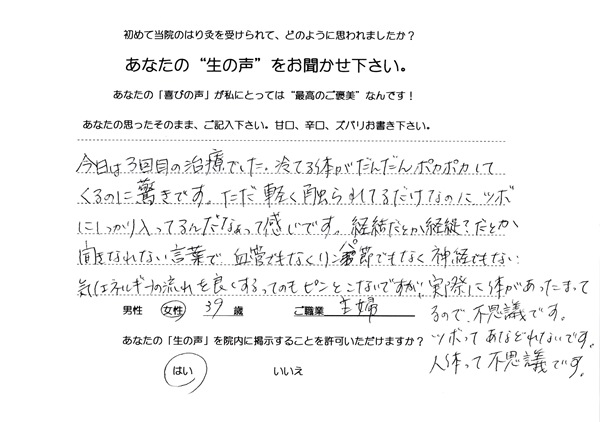 初めて当院のはり灸を受けられて、どのように思われましたか？
あなたの“生の声”をお聞かせ下さい。
あなたの「喜びの声」が私にとっては“最高のご褒美”なんです！
あなたの思ったそのまま、ご記入下さい。甘口、辛口、ズバリお書き下さい。
今日は3回目の治療でした。冷てる体がだんだんポカポカして
くるのに驚きです。ただ軽く触られてるだけなのにツボ
にしっかり入ってるんだなぁって感じです。経絡だとか経穴？だとか
聞きなれない言葉で、血管でもなくリンパ節でもなく神経でもない
気はエネルギーの流れを良くするってのもピンとこないですが、実際に体があったまって
るので、不思議です。
ツボってあなどれないです。
人体って不思議です。
男性 女性 39 歳 ご職業 主婦
あなたの「生の声」を院内に掲示することを許可いただけますか？
はい いいえ